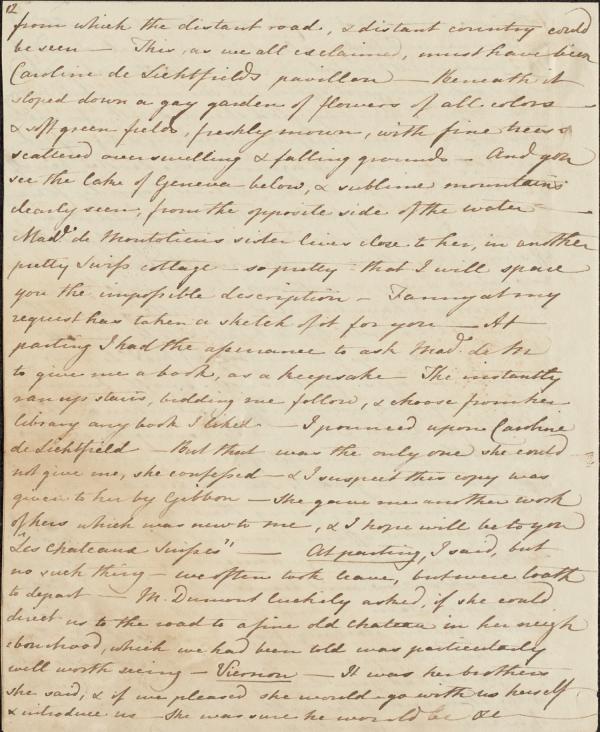 12
from which the distant road, & distant country could
be seen — This, as we all exclaimed, must have been
Caroline de Lichtfields pavillon — Beneath it
sloped down a gay garden of flowers of all colors —
& soft green fields, freshly mown, with fine trees
scattered over swelling & falling grounds — And you
see the Lake of Geneva below, & sublime mountains
clearly seen, from the opposite side of the water —
Mad.^e de Montolieus sister lives close to her, in another
pretty Swiss cottage — so pretty that I will spare
you the impossible description — Fanny at my
request has taken a sketch of it for you — At
parting I had the assurance to ask Mad.^e de M
to give me a book, as a keepsake — She instantly
ran up stairs, bidding me follow, & choose from her
library any book I liked — I pounced upon Caroline
de Lichtfield — But that was the only one she could
not give me, she confessed — & I suspect this copy was
given to her by Gibbon — She gave me another work
of hers which was new to me, & I hope will be to you
"Les Chateaux Suisses" — At parting, I said, but
no such thing — we often took leave, but were loath
to depart — M. Dumont luckily asked, if she could
direct us to the road to a fine old chateau in her neigh
-bourhood, which we had been told was particularly
well worth seeing — Viernon — It was her brothers
she said, & if we pleased she would go with us herself,
& introduce us — She was sure he would be &c